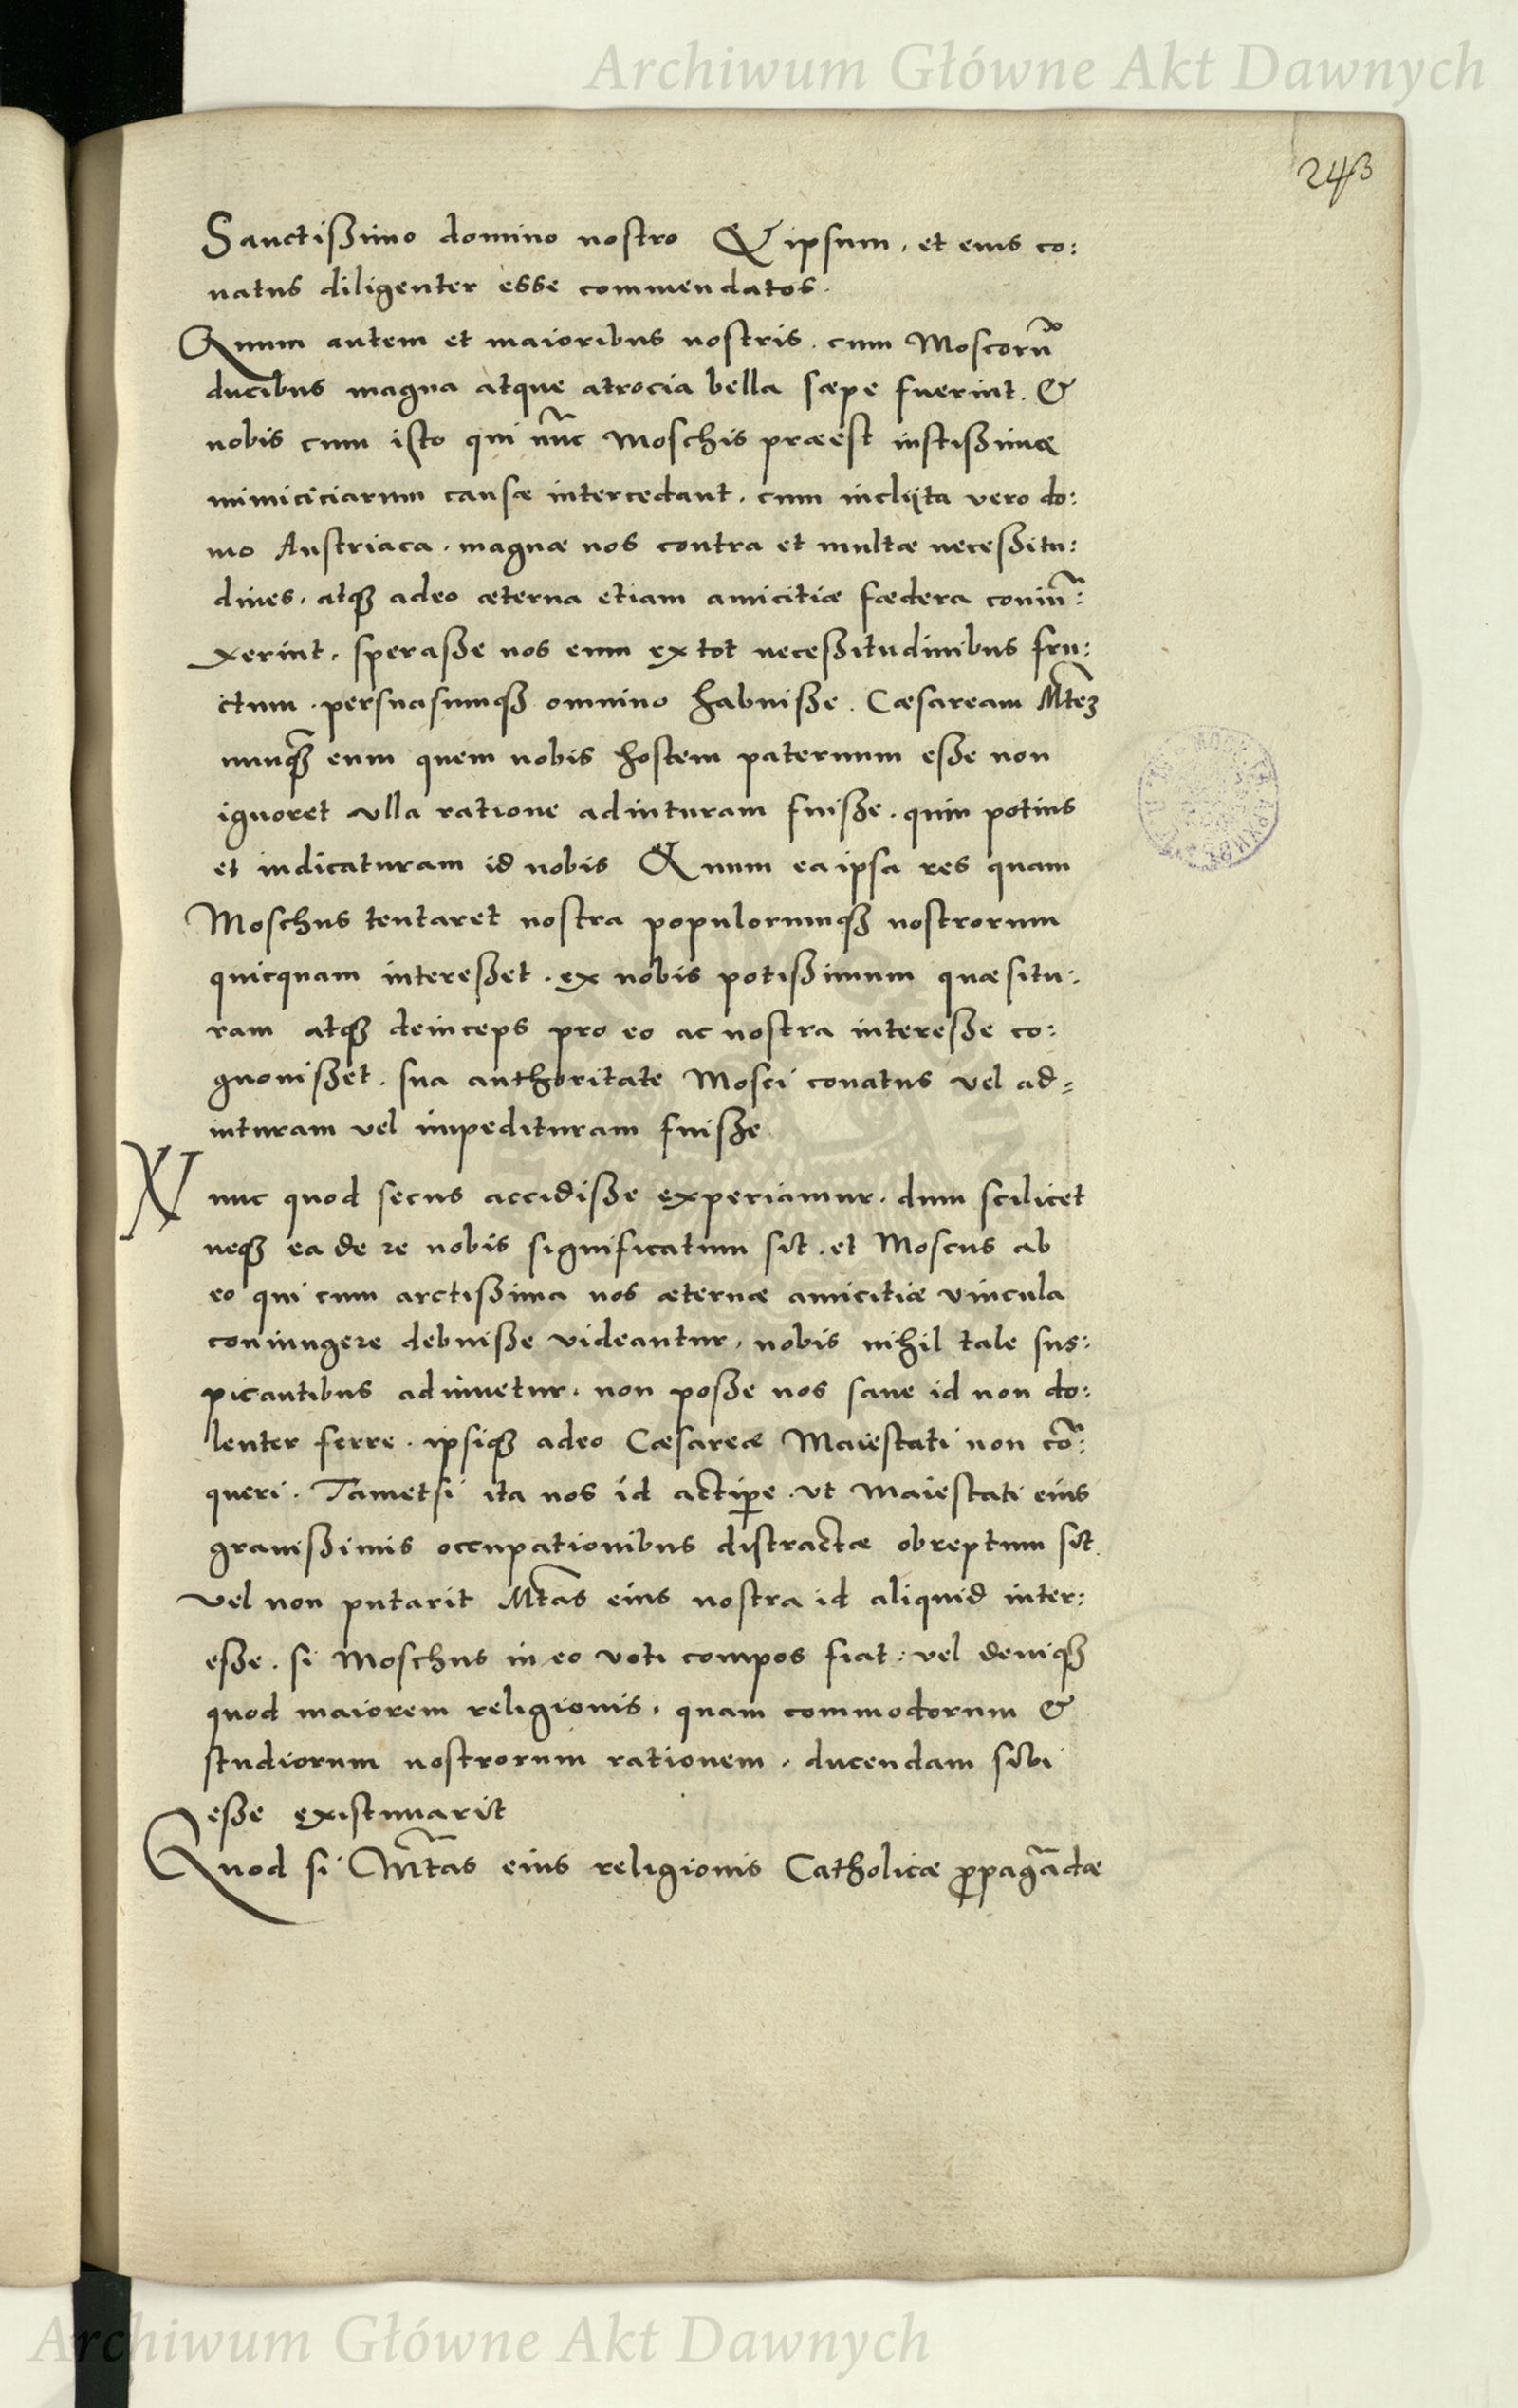 Archiwum Główne Akt Dawnych
243
Sanctißimo domino nostro & ipsum, et eius co:
natus diligenter esse commendatos.
Quum autem et maioribus nostris. cum Moscorũ
ducibus magna atque atrocia bella sæpe fuerint. &
nobis cum isto qui nũc Moschis præest iustißimæ
inimiciciarum causæ intercedant, cum inclÿta vero do:
mo Austriaca, magnæ nos contra et multæ neceßitu:
dines, atqȝ adeo æterna etiam amicitiæ fœdera coniũ:
xerint, speraße nos eum ex tot neceßitudinibus fru:
ctum. persuasumqȝ omnino habuiße. Cæsaream Mteȝ
nunqȝ eum quem nobis hostem paternum eße non
ignoret vlla ratione adiuturam fuiße. quin potius
et indicaturam id nobis Quum ea ipsa res quam
Moschus tentaret nostra populorumqȝ nostrorum
quicquam intereßet. ex nobis potißimum quæsitu:
ram atqȝ deinceps pro eo ac nostra intereße co:
gnouißet. sua authoritate Mosci conatus vel ad=
iuturam vel impedituram fuiße
Nunc quod secus accidiße experiamur. dum scilicet
neqȝ ea de re nobis significatum sit. et Moscus ab
eo qui cum arctißima nos æternæ amicitiæ vincula
coniungere debuiße videantur, nobis nihil tale sus:
picantibus adiuuetur. non poße nos sane id non do:
lenter ferre. ipsiqȝ adeo Cæsareæ Maiestati non cõ:
queri. Tametsi ita nos id accipe. vt Maiestati eius
grauißimis occupationibus distractæ obreptum sit.
vel non putarit Mtas eius nostra id aliquid inter:
eße. si Moschus in eo voti compos fiat: vel deniqȝ
quod maiorem religionis, quam commodorum &
studiorum nostrorum rationem, ducendam sibi
eße existimarit
Quod si Mtas eius religionis Catholicæ ꝓpagãdæ
Archiwum Główne Akt Dawnych